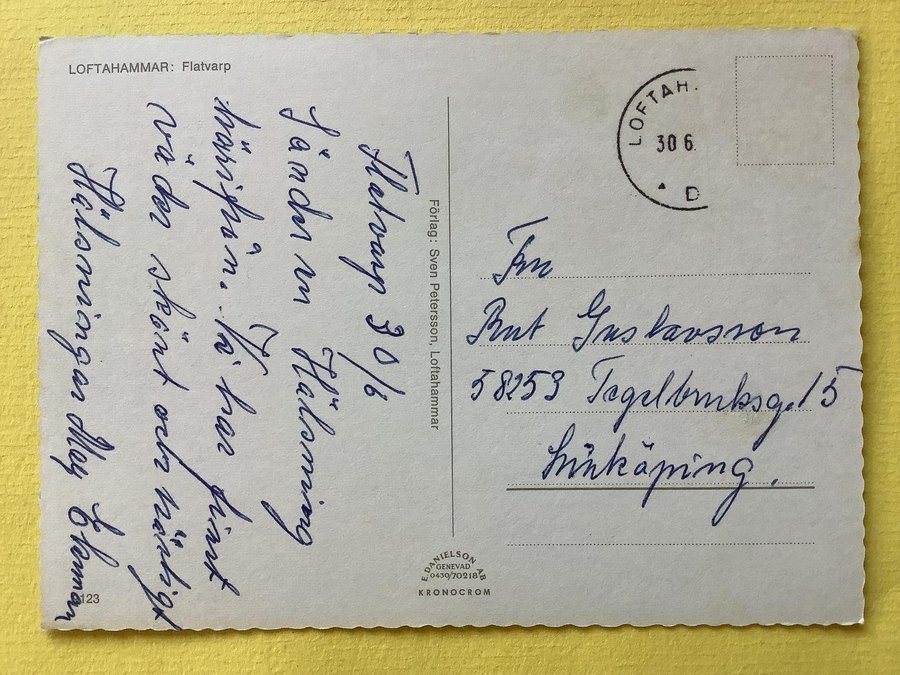 LOFTAHAMMAR: Flatvarp
Flatvarp 30/6
Sänder en Hälsning
härifrån. Vi har fint
väder skönt och härligt
Hälsningar Elly Ekman
Förlag: Sven Petersson, Loftahammar
LOFTAH.
30 6.
D
Fru
Brut Gustavsson
58253 Tegelbruksg. 15
Linköping.
E. DANIELSON AB
GENEVAD
0430/70218
KRONOCROM
123